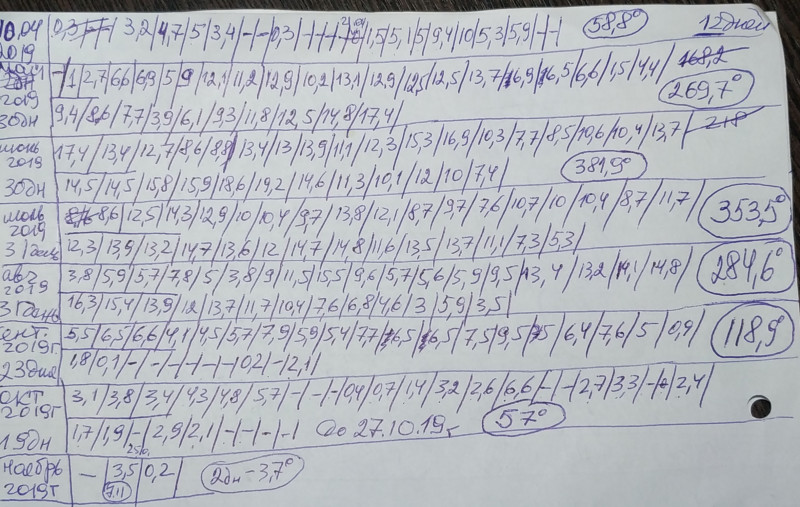 10.04 2019 0,3 3,2/4,7/5/3,4/-/-/0,3/-/-/-/ 1,5/5,1/5/9,4/10/5,3/5,9/-/-/ 58,8° 12 дней
2019 -/1/2,7/6,6/6,9/5/9/12,1/11,2/12,9/10,2/13,1/12,9/12,5/12,5/13,7/16,9/16,5/6,6/1,5/4,4/ 168,2 269,7°
30дн 9,4/8,6/7,7/3,9/6,1/9,3/11,8/12,5/14,8/17,4/
июнь 2019 17,4/13,4/12,7/8,6/8,8/13,4/13/13,9/11,1/12,3/15,3/16,9/10,3/7,7/8,5/10,6/10,4/13,7/ 218
30дн 14,5/14,5/15,8/15,9/18,6/19,2/14,6/11,3/10,1/12/10/7,4/ 381,9°
июль 2019 8,6/12,5/14,3/12,9/10/10,4/9,7/13,8/12,1/8,7/9,7/7,6/10,7/10/10,4/8,7/11,7/ 353,5°
31день 12,3/13,9/13,2/14,7/13,6/12/14,7/14,8/11,6/13,5/13,7/11,1/7,3/5,3/
авг 2019 3,8/5,9/5,7/7,8/5/3,8/9/11,5/15,5/9,6/5,7/5,6/5,9/9,5/13,4/13,2/14,1/14,8/ 284,6°
31день 16,3/15,4/13,9/12/13,7/11,7/10,4/7,6/6,8/4,6/3/5,9/3,5/
сент. 2019г 5,5/6,5/6,6/4,1/4,5/5,7/7,9/5,9/5,4/7,7/6,5/6,5/7,5/9,5/ 6,4/7,6/5/0,9/ 118,9°
23дня 1,8/0,1/-/-/-/-/-/-/0,2/-/2,1/
окт 2019г 3,1/3,8/3,4/4,3/4,8/5,7/-/-/-/0,4/0,7/1,4/3,2/2,6/6,6/-/-/2,7/3,3/-/2,4/
19дн 1,7/1,9/-/2,9/2,1/-/-/-/-/ до 27.10.19г 57°
ноябрь 2019г -/3,5/0,2/ 2дн-3,7°
7.11